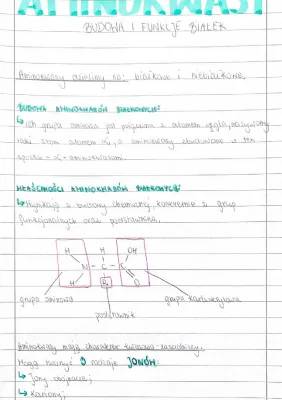 AMINOKWASY
BUDOWA I FUNKCJE BIAŁEK
Aminokwasy dzielimy na: białkowe i niebiałkowe.
BUDOWA AMINOKWASÓW BIAŁKOWYCH:
↳ Ich grupa aminowa jest połączona z atomem węgla, nazywany
atom atomem α, a aminokwasy zbudowane w ten
sposób - α - aminokwasami.
WŁAŚCIWOŚCI AMINOKWASÓW BIAŁKOWYCH:
↳ Wynikają z budowy chemicznej, konkretnie z grup
funkcyjnych oraz podstawnika.
H H OH
N - C - C
H R O
grupa aminowa
grupa karboksylowa
podstawnik
Aminokwasy mają charakter
Mogą tworzyć 3 rodzaje JONÓW:
↳ Jony obojnacze;
↳ Kationy;